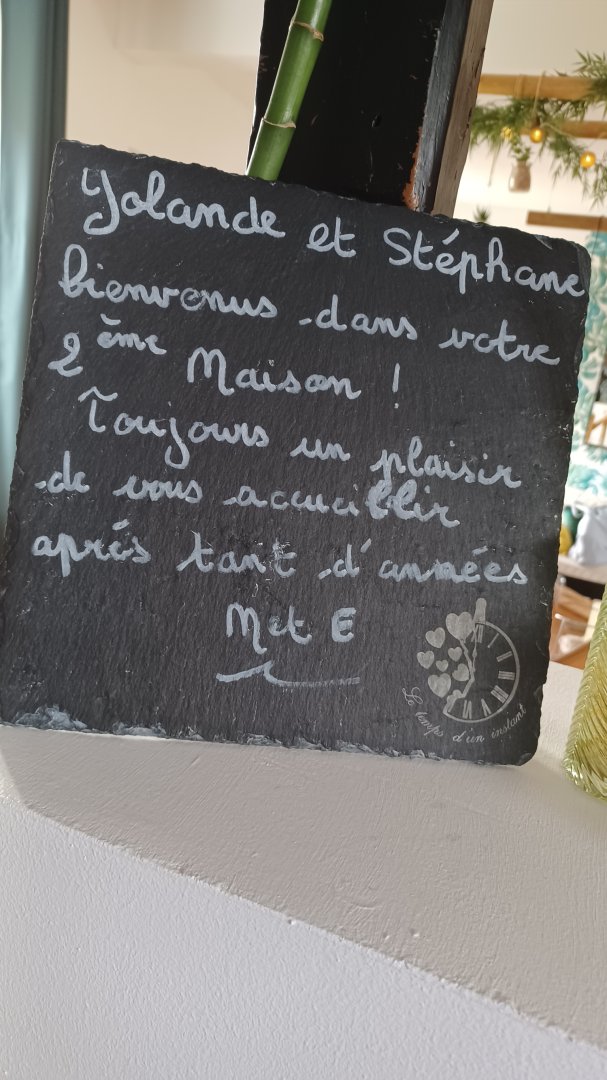 Yolande et Stéphane
bienvenus dans votre
2ème Maison !
Toujours un plaisir
de vous accueillir
après tant d'années
M et E
Le temps d'un instant